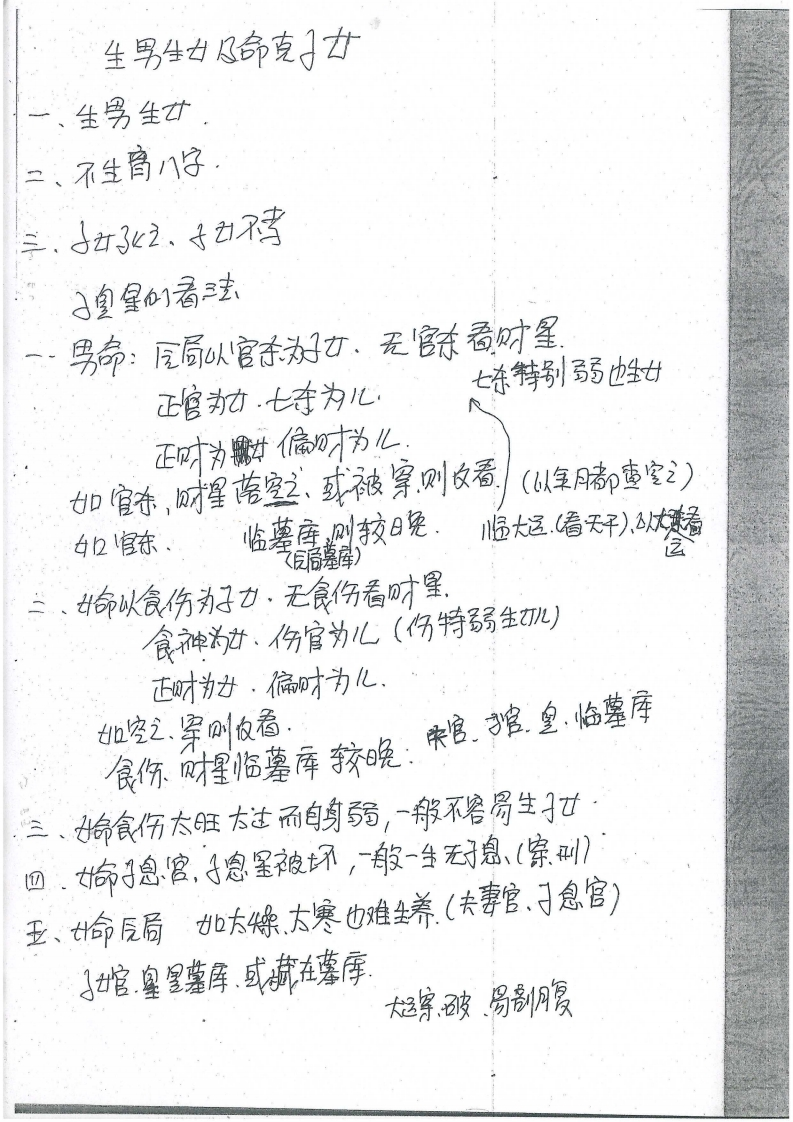 生男生女及命克子女
一、生男生女.
二、不生育八字.
三、子女多少、子女不孝
子息星的看法
一、男命：原局以官杀为子女、无官杀看财星.
七杀特别弱也生女
正官为女.七杀为儿.
正财为女 偏财为儿.
如官杀,财星落空亡、或被穿,则反看.
(以年月都查空亡)
如官杀.临墓库,则较晚.
(原局墓库)
临大运.(看天干),以大运看
二、女命以食伤为子女.无食伤看财星.
食神为女.伤官为儿(伤特弱生女儿)
正财为女.偏财为儿.
如空亡、穿则反看.
食伤、财星临墓库 较晚：
夫宫、子宫、星、临墓库
三、女命食伤太旺太过而自身弱,一般不容易生子女.
四、女命子息宫、子息星被坏,一般一生无子息.(穿、刑)
五、女命原局 如太燥、太寒也难生养.(夫妻宫、子息宫)
子女宫、星是墓库、或藏在墓库.
大运穿、破、易剖腹